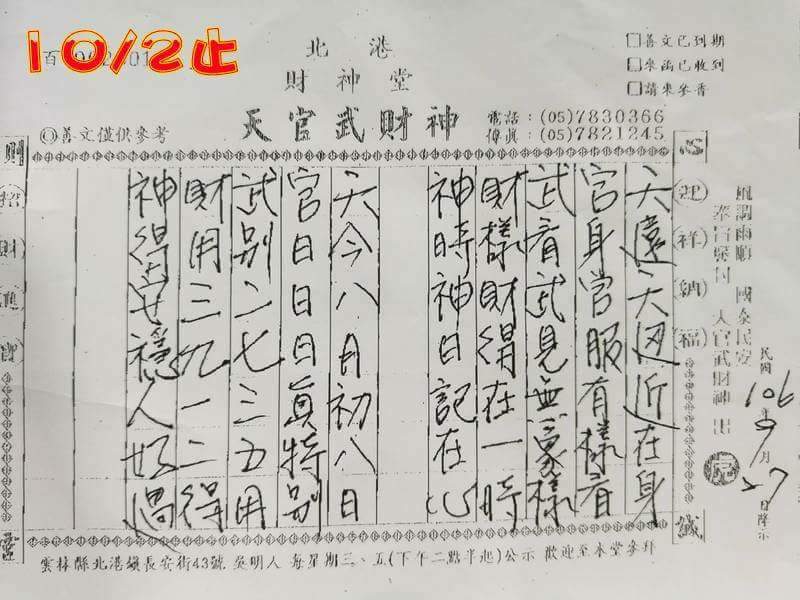 10/2止
北港
財神堂
天官武財神
◎善文僅供參考
電話：(05)7830366
傳真：(05)7821245
□善文已到期
□來函已收到
□請來參香
風調雨順 國泰民安
天官武財神
民國106年9月27日降示
迎祥納福
誠
天遠天邊近在身
官身官服有樣看
武看武見無象樣
財樣財得在一時
神時神日記在心
天今八月初八日
官日日日真特別
武別二七三五用
財用三九一二得
神得安穩人好過
則
招財進寶
靈
雲林縣北港鎮長安街43號 吳明人 每星期三、五(下午二點半起)公示 歡迎至本堂參拜